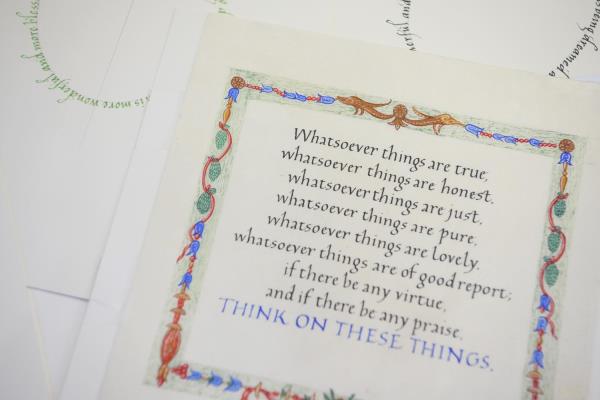 Whatsoever things are true,
whatsoever things are honest,
whatsoever things are just,
whatsoever things are pure,
whatsoever things are lovely,
whatsoever things are of good report;
if there be any virtue,
and if there be any praise,
THINK ON THESE THINGS.
is more wonderful and more bless
erful and
being dreamed a